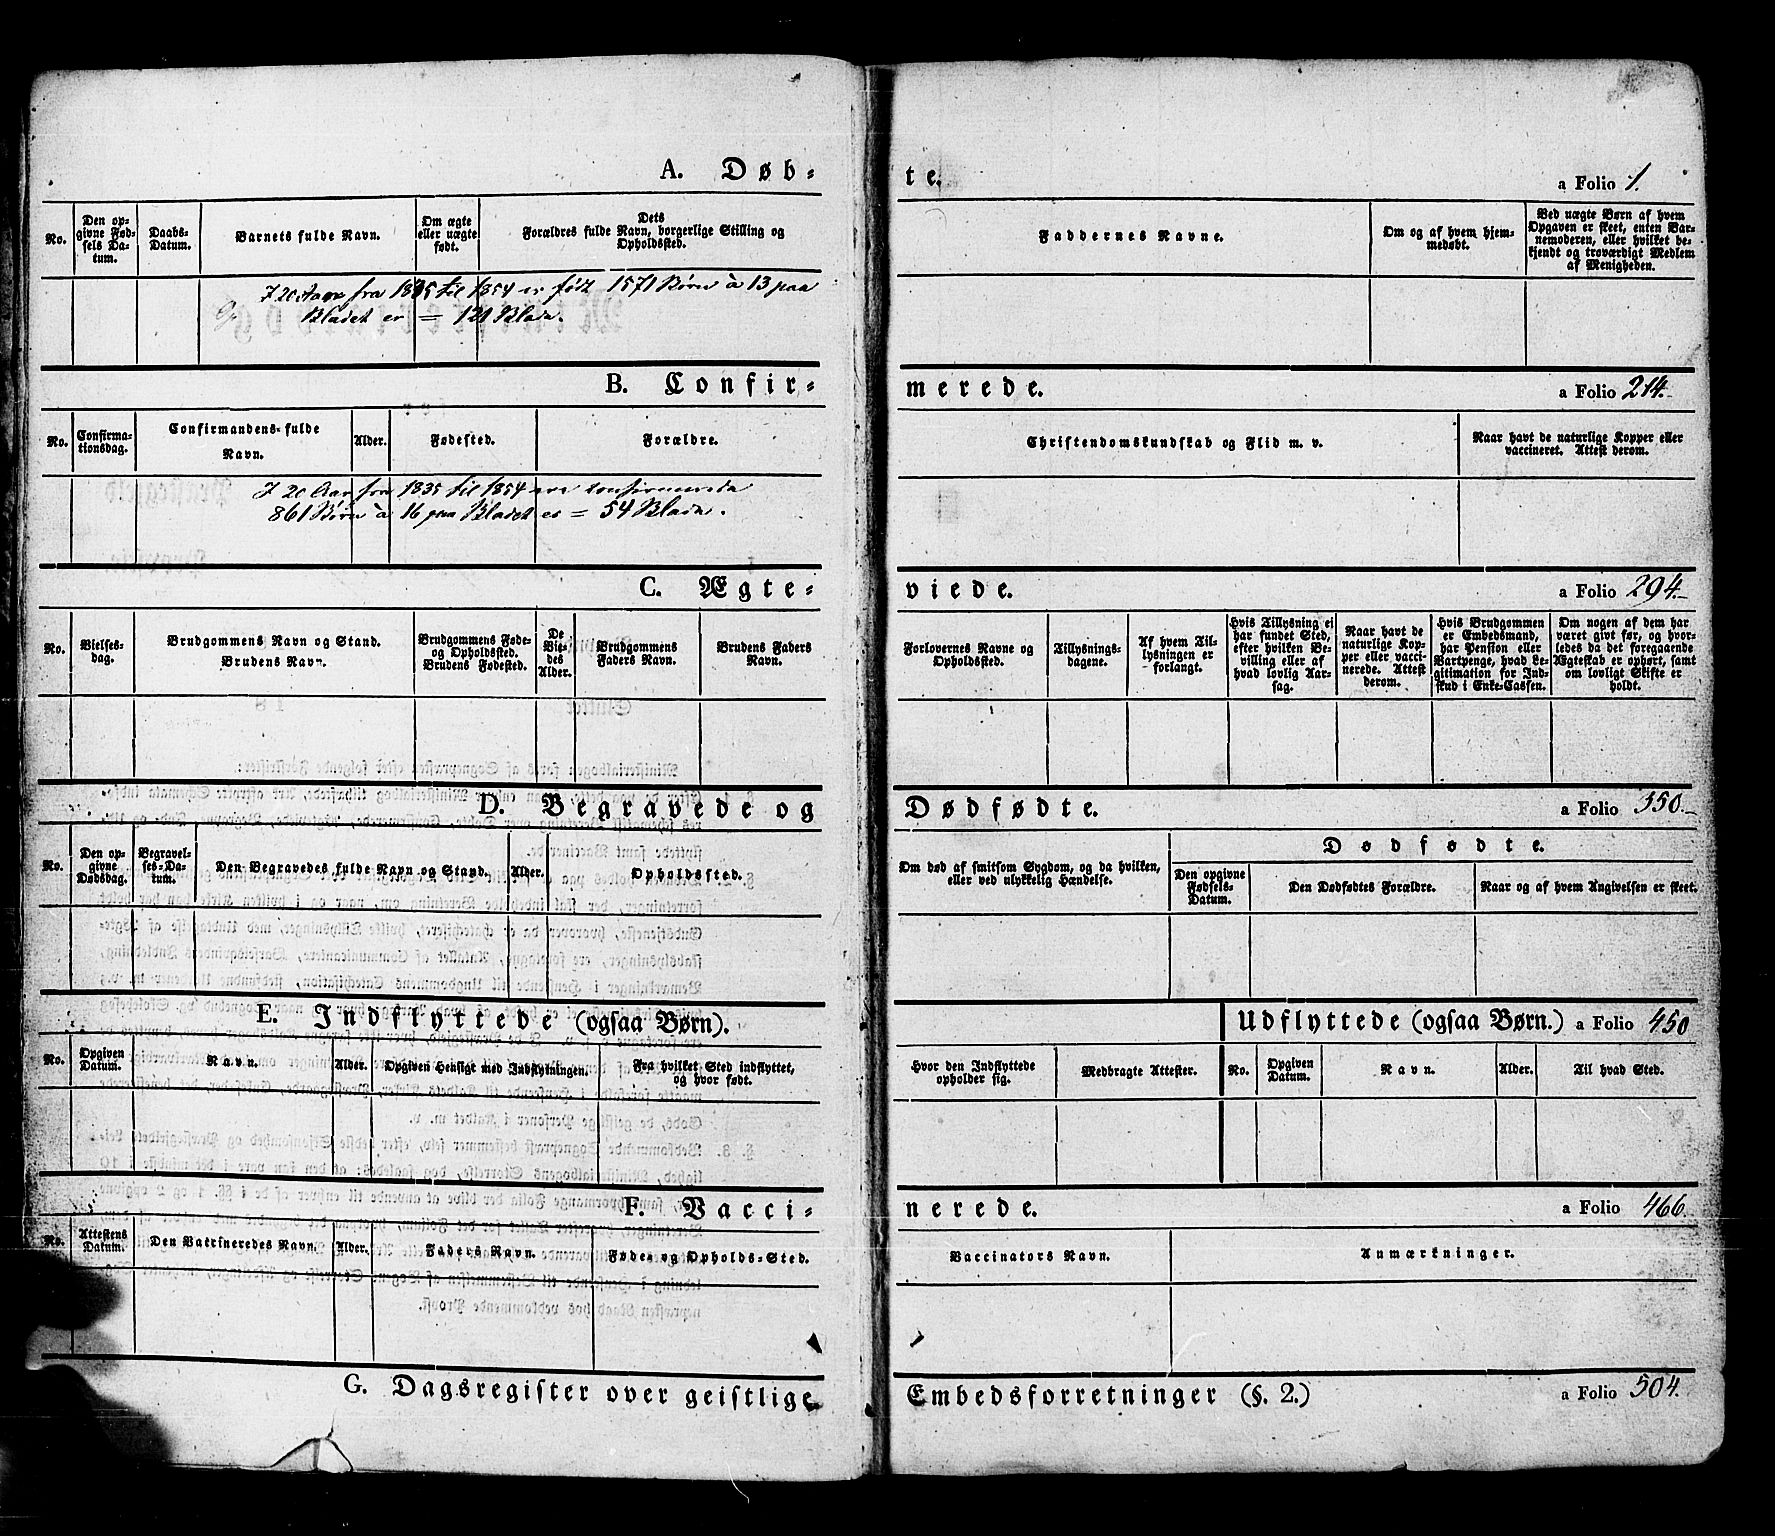 A. Døb-
te.
a Folio 1.
No.
Den op-
givne Fød-
sels Da-
tum.
Daabs-
Datum.
Barnets fulde Navn.
Om ægte
eller uægte
født.
Dets
Forældres fulde Navn, borgerlige Stilling og
Opholdssted.
Faddernes Navne.
Om og af hvem hjem-
medøbt.
Ved uægte Børn af hvem
Opgaven er skeet, enten Bar-
nemoderen, eller hvilket be-
kjendt og troværdigt Medlem
af Menigheden.
I 20 Aar fra 1835 til 1854 er født 1571 Børn à 13 paa
Bladet er = 121 Blade.
B. Confir-
merede.
a Folio 214.
No.
Confirma-
tionsdag.
Confirmandens fulde
Navn.
Alder.
Fødested.
Forældre.
Christendomskundskab og Flid m. v.
Naar havt de naturlige Kopper eller
vaccineret. Attest derom.
I 20 Aar fra 1835 til 1854 ere confirmerede
861 Børn à 16 paa Bladet er = 54 Blade.
C. Ægte-
viede.
a Folio 294.
No.
Vielses-
dag.
Brudgommens Navn og Stand.
Brudens Navn.
Brudgommens Føde-
og Opholdssted.
Brudens Fødested.
De
Vie-
des
Alder.
Brudgommens
Faders Navn.
Brudens Faders
Navn.
Forlovernes Navne og
Opholdssted.
Tillysnings-
dagene.
Af hvem Til-
lysningen er
forlangt.
Hvis Tillysning ei
har fundet Sted,
efter hvilken Be-
villing eller af
hvad lovlig Aar-
sag.
Naar havt de
naturlige Kop-
per eller vacci-
nerede. Attest
derom.
Hvis Brudgommen
er Embedsmand,
har Pension eller
Vartpenge, hvad Le-
gitimation for Ind-
skud i Enke-Cassen.
Om nogen af dem har
været givt før, og hvor-
ledes da det foregaaende
Ægteskab er ophørt, samt
om lovligt Skifte er
holdt.
D. Begravede og
Dødfødte.
a Folio 350.
No.
Den op-
givne
Dødsdag.
Begravel-
ses-Da-
tum.
Den Begravedes fulde Navn og Stand.
Alder.
Opholdssted.
Om død af smitsom Sygdom, og da hvilken,
eller ved ulykkelig Hændelse.
Dødfødte.
Den opgivne
Fødsels-
Datum.
Den Dødfødtes Forældre.
Naar og af hvem Angivelsen er skeet.
E. Indflyttede (ogsaa Børn).
Udflyttede (ogsaa Børn.) a Folio 450
No.
Opgiven
Datum.
Navn.
Alder.
Opgiven Hensigt med Indflytningen.
Fra hvilket Sted indflyttet,
og hvor født.
Hvor den Indflyttede
opholder sig.
Medbragte Attester.
No.
Opgiven
Datum.
Navn.
Alder.
Til hvad Sted.
F. Vacci-
nerede.
a Folio 466.
No.
Attestens
Datum.
Den Vaccineredes Navn.
Alder.
Faders Navn.
Føde- og Opholds-Sted.
Vaccinators Navn.
Anmærkninger.
G. Dagsregister over geistlige
Embedsforretninger (§. 2.)
a Folio 504.